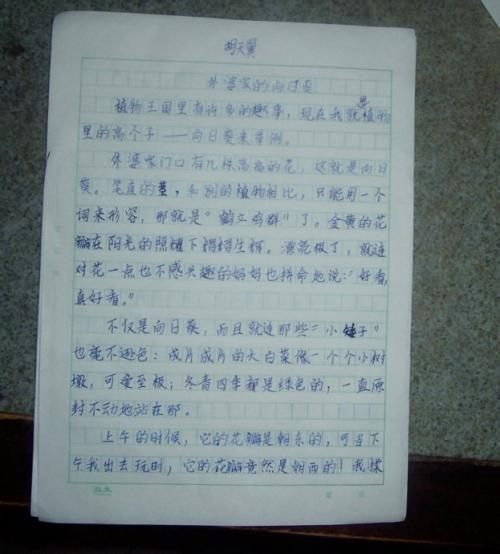 胡天翼
外婆家的向日葵
植物王国里有许多的趣事，现在我就拿植物
里的高个子——向日葵来举例。
外婆家门口有几株高高的花，这就是向日
葵。笔直的茎，和别的植物相比，只能用一个
词来形容，那就是“鹤立鸡群”了。金黄的花
瓣在阳光的照耀下熠熠生辉。漂亮极了，就连
对花一点也不感兴趣的妈妈也拼命地说：“好看，
真好看。”
不仅是向日葵，而且就连那些“小矮子”
也毫不逊色：成片成片的大白菜像一个个小树
墩，可爱至极；冬青四季都是绿色的，一直原
封不动地站在那。
上午的时候，它的花瓣是朝东的，可当下
午我出去玩时，它的花瓣竟然是朝西的！我揉